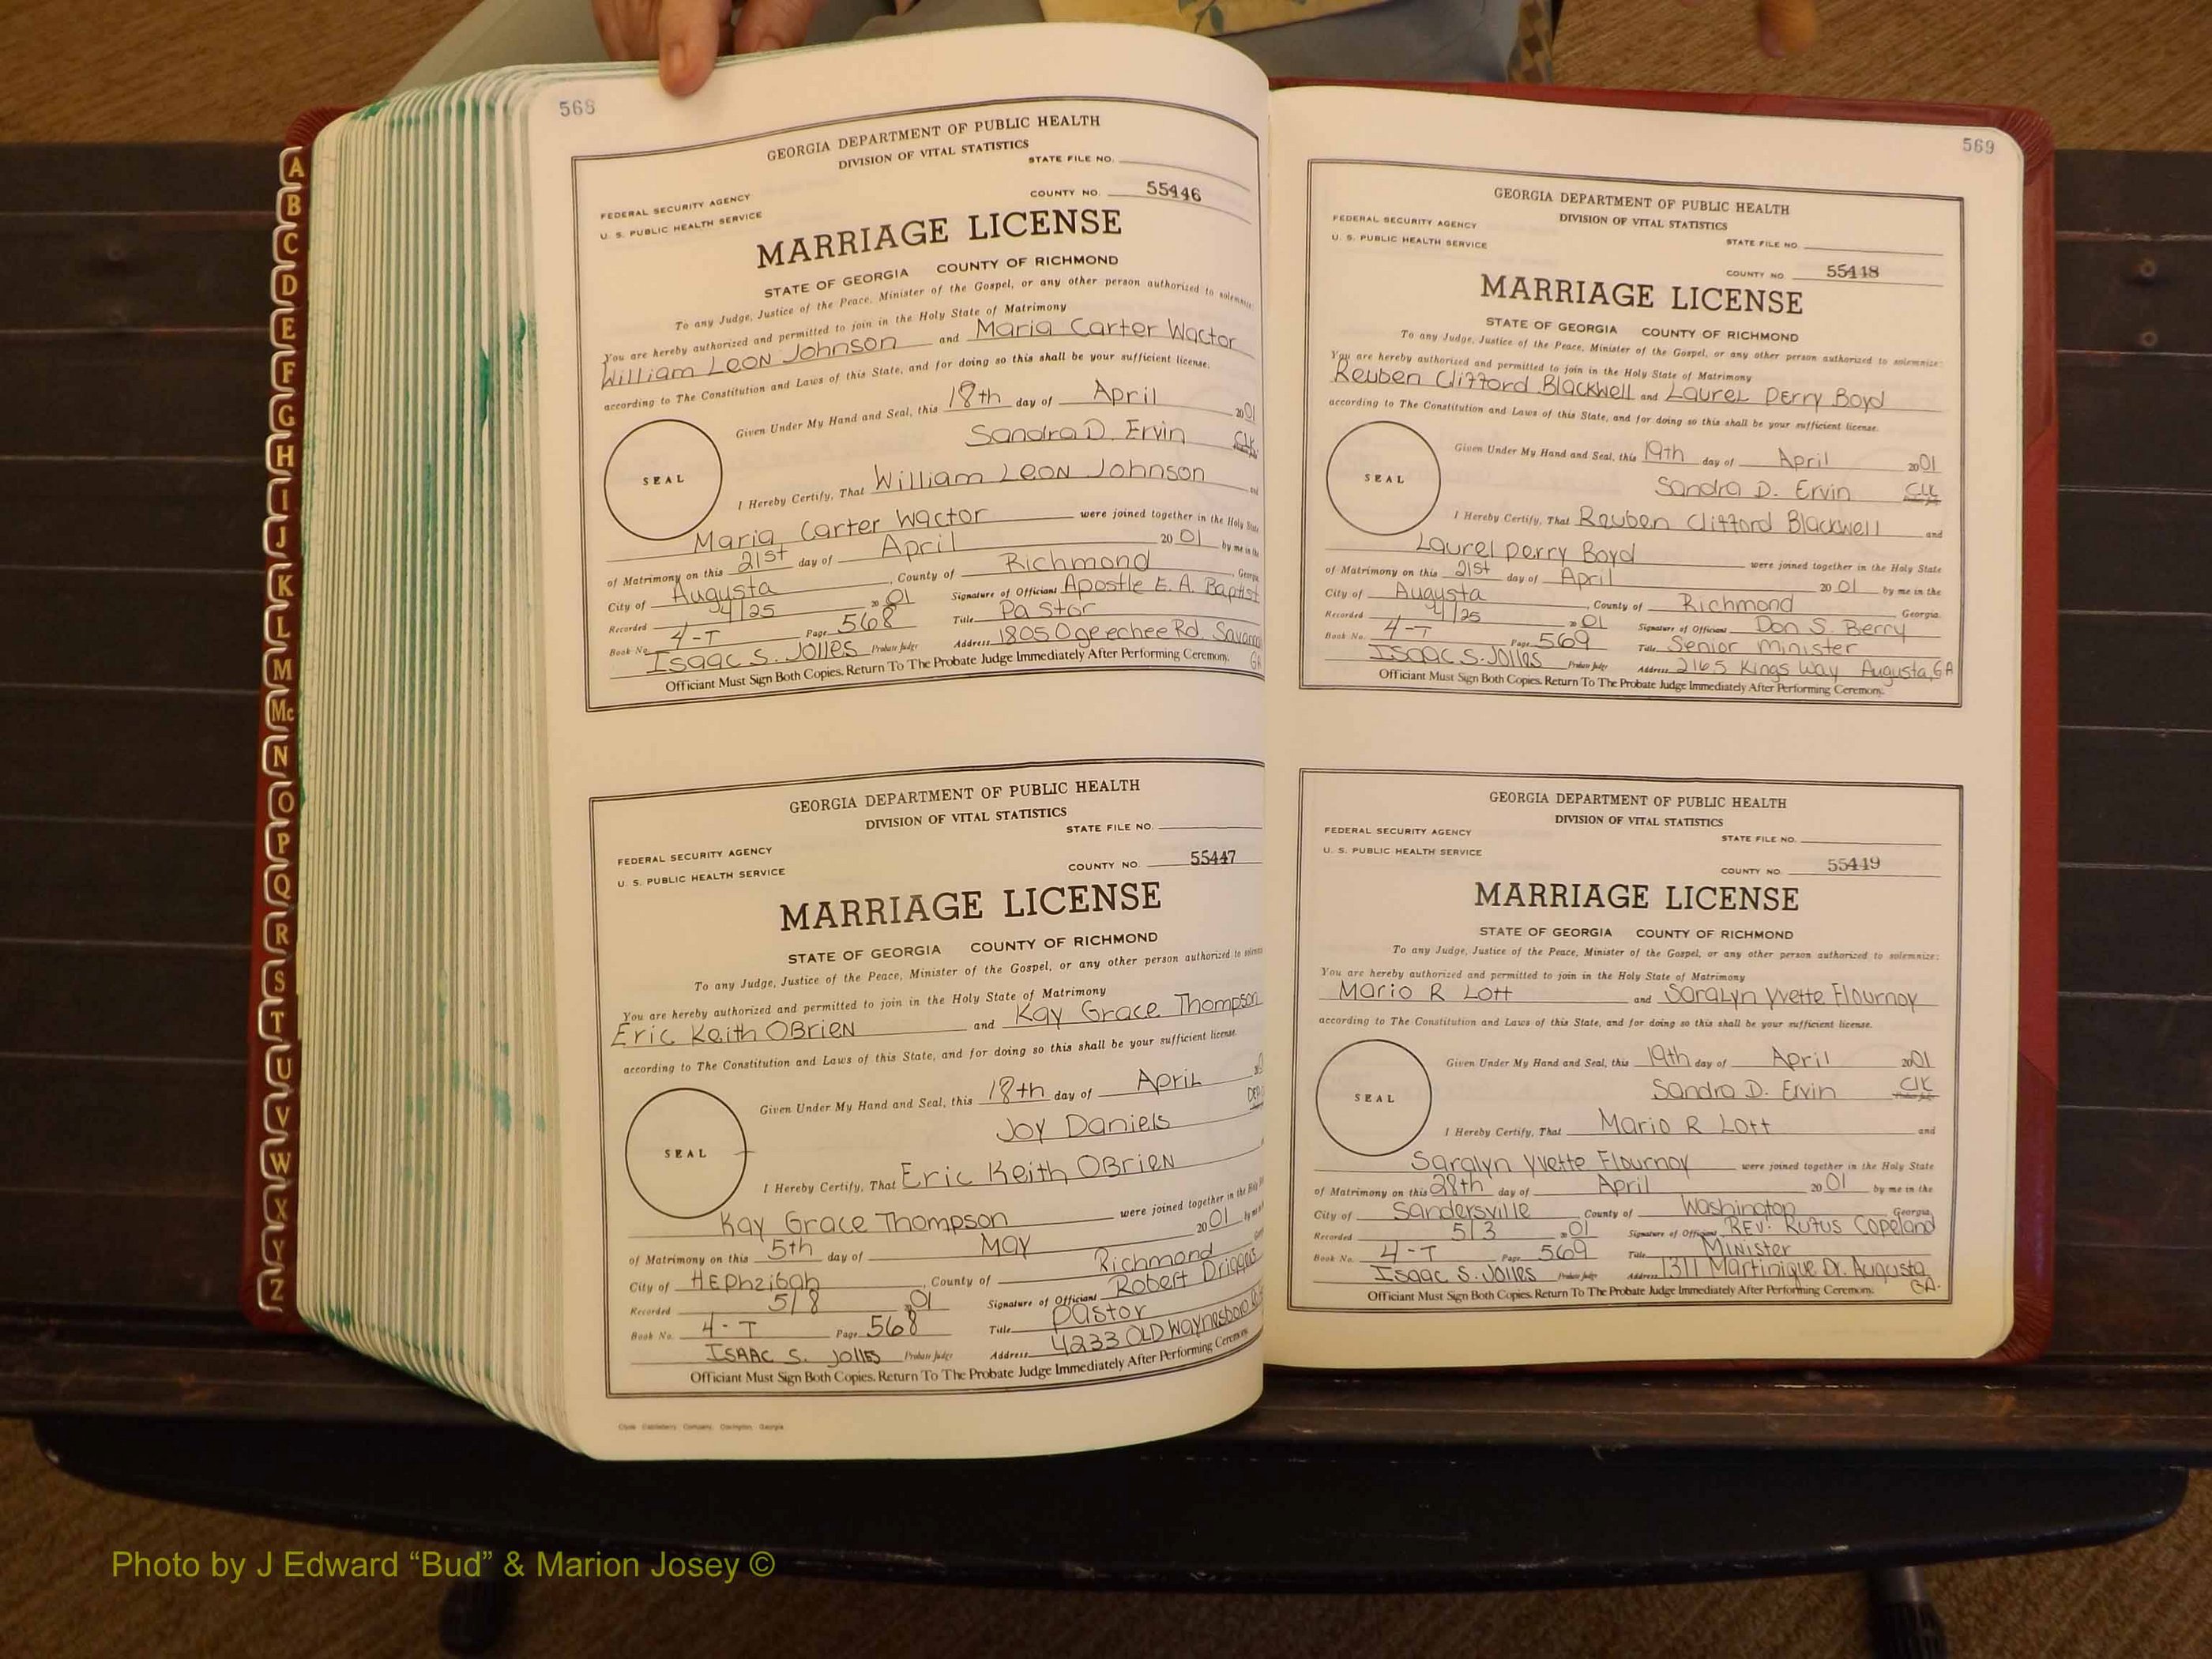 568
GEORGIA DEPARTMENT OF PUBLIC HEALTH
DIVISION OF VITAL STATISTICS
STATE FILE NO.
FEDERAL SECURITY AGENCY
U. S. PUBLIC HEALTH SERVICE
COUNTY NO. 55446
MARRIAGE LICENSE
STATE OF GEORGIA COUNTY OF RICHMOND
To any Judge, Justice of the Peace, Minister of the Gospel, or any other person authorized to solemnize:
You are hereby authorized and permitted to join in the Holy State of Matrimony
William Leon Johnson and Maria Carter Wactor
according to The Constitution and Laws of this State, and for doing so this shall be your sufficient license.
Given Under My Hand and Seal, this 18th day of April 2001
Sandra D. Ervin Clk
SEAL
I Hereby Certify, That William Leon Johnson and
Maria Carter Wactor were joined together in the Holy State
of Matrimony on this 21st day of April 2001 by me in the
City of Augusta, County of Richmond, Georgia
Recorded 4/25 2001 Signature of Officiant Apostle E. A. Baptist
Book No. 4-T Page 568 Title Pastor
Isaac S. Jolles Probate Judge Address 1805 Ogeechee Rd. Savanna
GA
Officiant Must Sign Both Copies. Return To The Probate Judge Immediately After Performing Ceremony.
GEORGIA DEPARTMENT OF PUBLIC HEALTH
DIVISION OF VITAL STATISTICS
STATE FILE NO.
FEDERAL SECURITY AGENCY
U. S. PUBLIC HEALTH SERVICE
COUNTY NO. 55447
MARRIAGE LICENSE
STATE OF GEORGIA COUNTY OF RICHMOND
To any Judge, Justice of the Peace, Minister of the Gospel, or any other person authorized to
You are hereby authorized and permitted to join in the Holy State of Matrimony
Eric Keith OBrien and Kay Grace Thompson
according to The Constitution and Laws of this State, and for doing so this shall be your sufficient license.
Given Under My Hand and Seal, this 18th day of April
Joy Daniels
SEAL
I Hereby Certify, That Eric Keith OBrien
Kay Grace Thompson were joined together in the Holy
of Matrimony on this 5th day of May 2001 by me
City of Hephzibah, County of Richmond
Recorded 5/8 01 Signature of Officiant Robert Driggers
Book No. 4-T Page 568 Title Pastor
Isaac S. Jolles Probate Judge Address 4233 Old Waynesboro
Officiant Must Sign Both Copies. Return To The Probate Judge Immediately After Performing Ceremony.
569
GEORGIA DEPARTMENT OF PUBLIC HEALTH
DIVISION OF VITAL STATISTICS
FEDERAL SECURITY AGENCY
U. S. PUBLIC HEALTH SERVICE
STATE FILE NO.
COUNTY NO. 55448
MARRIAGE LICENSE
STATE OF GEORGIA COUNTY OF RICHMOND
To any Judge, Justice of the Peace, Minister of the Gospel, or any other person authorized to solemnize:
You are hereby authorized and permitted to join in the Holy State of Matrimony
Reuben Clifford Blackwell and Laurel Perry Boyd
according to The Constitution and Laws of this State, and for doing so this shall be your sufficient license.
Given Under My Hand and Seal, this 19th day of April 2001
Sandra D. Ervin Clk
SEAL
I Hereby Certify, That Reuben Clifford Blackwell and
Laurel Perry Boyd were joined together in the Holy State
of Matrimony on this 21st day of April 2001 by me in the
City of Augusta, County of Richmond Georgia.
Recorded 4/25 2001 Signature of Officiant Don S. Berry
Book No. 4-T Page 569 Title Senior Minister
Isaac S. Jolles Probate Judge Address 2165 Kings Way Augusta, GA
Officiant Must Sign Both Copies. Return To The Probate Judge Immediately After Performing Ceremony.
GEORGIA DEPARTMENT OF PUBLIC HEALTH
DIVISION OF VITAL STATISTICS
FEDERAL SECURITY AGENCY
U. S. PUBLIC HEALTH SERVICE
STATE FILE NO.
COUNTY NO. 55449
MARRIAGE LICENSE
STATE OF GEORGIA COUNTY OF RICHMOND
To any Judge, Justice of the Peace, Minister of the Gospel, or any other person authorized to solemnize:
You are hereby authorized and permitted to join in the Holy State of Matrimony
Mario R Lott and Saralyn Yvette Flournoy
according to The Constitution and Laws of this State, and for doing so this shall be your sufficient license.
Given Under My Hand and Seal, this 19th day of April 2001
Sandra D. Ervin Clk
SEAL
I Hereby Certify, That Mario R Lott and
Saralyn Yvette Flournoy were joined together in the Holy State
of Matrimony on this 28th day of April 2001 by me in the
City of Sandersville County of Washington Georgia
Recorded 5/3 2001 Signature of Officiant Rev. Rufus Copeland
Book No. 4-T Page 569 Title Minister
Isaac S. Jolles Probate Judge Address 1311 Martinique Dr. Augusta
GA.
Officiant Must Sign Both Copies. Return To The Probate Judge Immediately After Performing Ceremony.
A
B
C
D
E
F
G
H
I
J
K
L
M
Mc
N
O
P
Q
R
S
T
U
V
W
X
Y
Z
Photo by J Edward “Bud” & Marion Josey ©